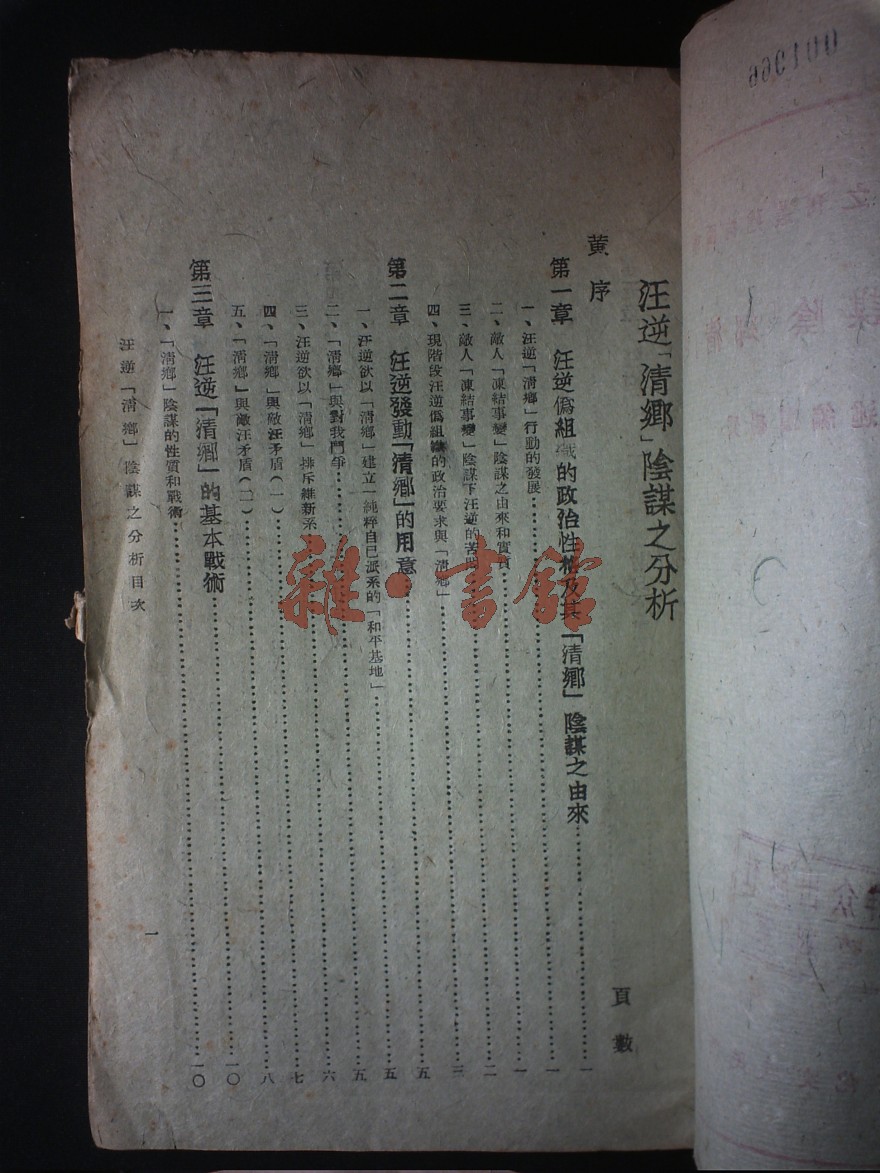 汪逆「清鄉」陰謀之分析
頁數
黃序
第一章 汪逆僞組織的政治性格及其「清鄉」陰謀之由來……一
一、汪逆「清鄉」行動的發展……一
二、敵人「凍結事變」陰謀之由來和實質……二
三、敵人「凍結事變」陰謀下汪逆的苦悶……三
四、現階段汪逆僞組織的政治要求與「清鄉」……五
第二章 汪逆發動「清鄉」的用意……五
一、汪逆欲以「清鄉」建立一純粹自已派系的「和平基地」……五
二、「清鄉」與對我鬥爭……六
三、汪逆欲以「清鄉」排斥維新系……七
四、「清鄉」與敵汪矛盾(一)……八
五、「清鄉」與敵汪矛盾(二)……一〇
第三章 汪逆「清鄉」的基本戰術……一〇
一、「清鄉」陰謀的性質和戰術
汪逆「清鄉」陰謀之分析目次
一
雜·書館
001966